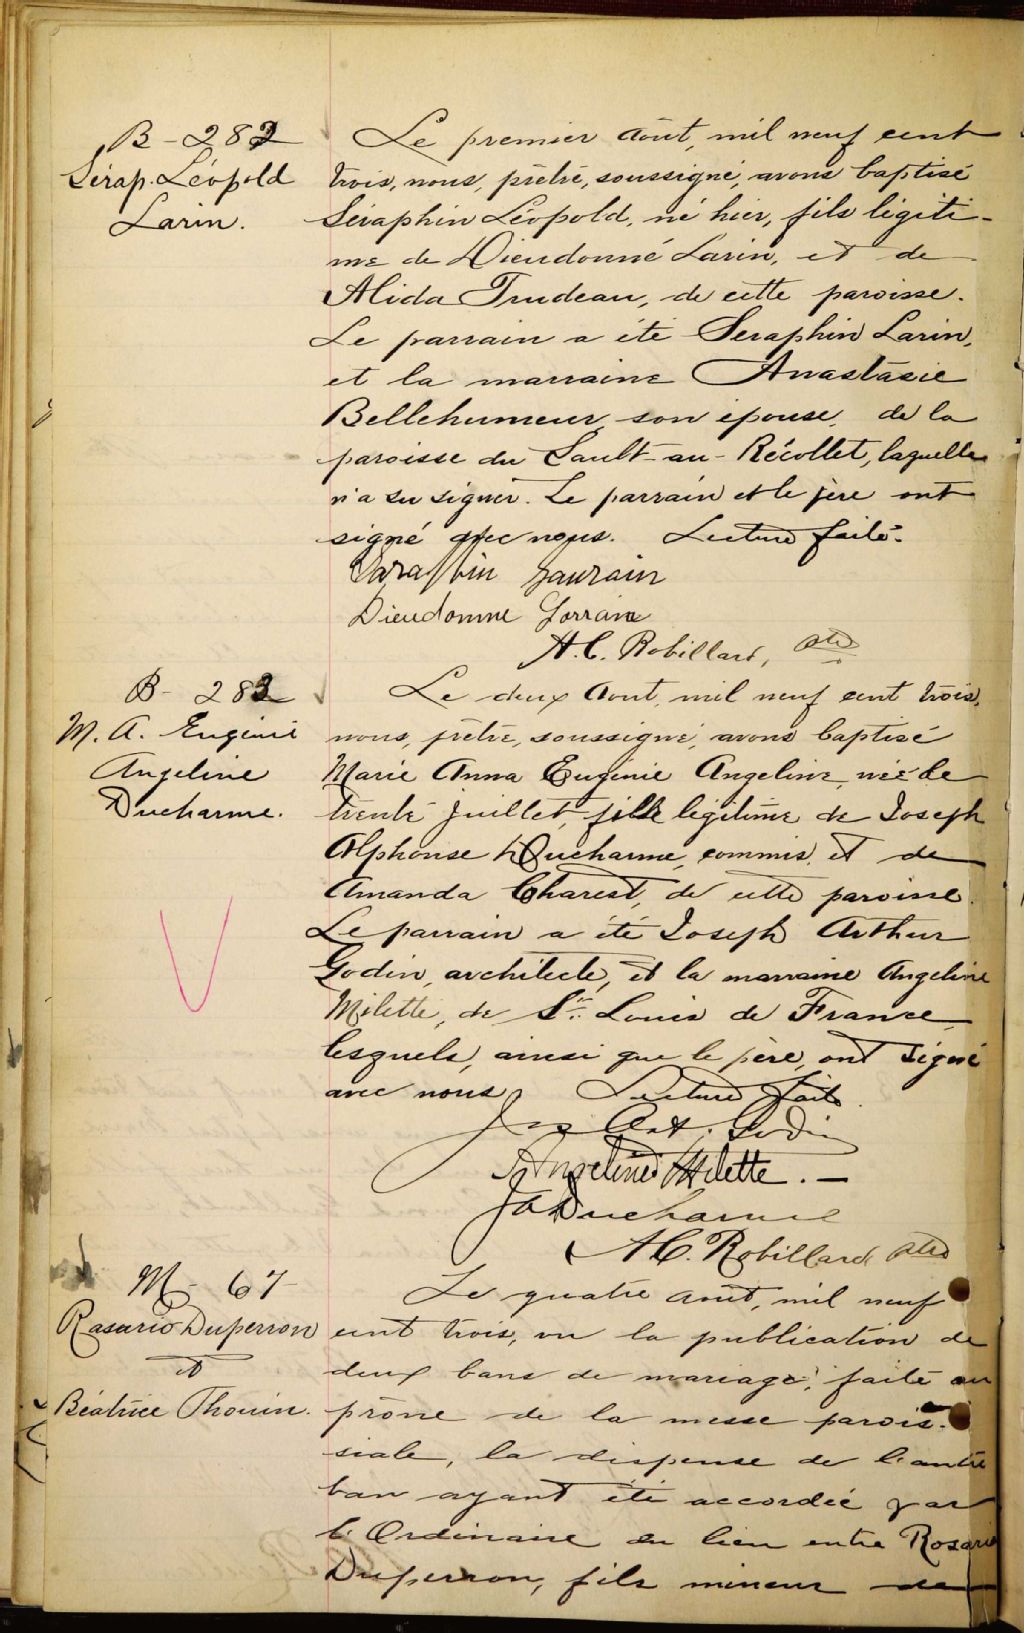 B - 282
Sérap. Léopold
Larin.
Le premier août, mil neuf cent
trois, nous, prêtre, soussigné, avons baptisé
Séraphin Léopold, né hier, fils légiti-
me de Dieudonné Larin, et de
Alida Trudeau, de cette paroisse.
Le parrain a été Seraphin Larin,
et la marraine Anastasie
Bellehumeur, son épouse, de la
paroisse du Sault-au-Récollet, laquelle
n'a su signer. Le parrain et le père ont
signé avec nous. Lecture faite.
Saraphin Laurain
Dieudonne Lorrain
A. C. Robillard, ptre
B - 283
M. A. Eugénie
Angeline
Ducharme.
Le deux août, mil neuf cent trois,
nous, prêtre, soussigné, avons baptisé
Marie Anna Eugénie Angeline, née le
trente juillet, fille légitime de Joseph
Alphonse Ducharme, commis, et de
Amanda Charest, de cette paroisse.
Le parrain a été Joseph Arthur
Godin, architecte, et la marraine Angeline
Milette, de St. Louis de France,
lesquels, ainsi que le père, ont signé
avec nous. Lecture faite.
Jos Art. Godin
Angeline Milette. —
J A Ducharme
A. C. Robillard ptre
M - 67
Rosario Duperron
et
Béatrice Thouin.
Le quatre août, mil neuf
cent trois, vu la publication de
deux bans de mariage, faite au
prône de la messe parois-
siale, la dispense de l'autre
ban ayant été accordée par
l'Ordinaire du lieu entre Rosario
Duperron, fils mineur de